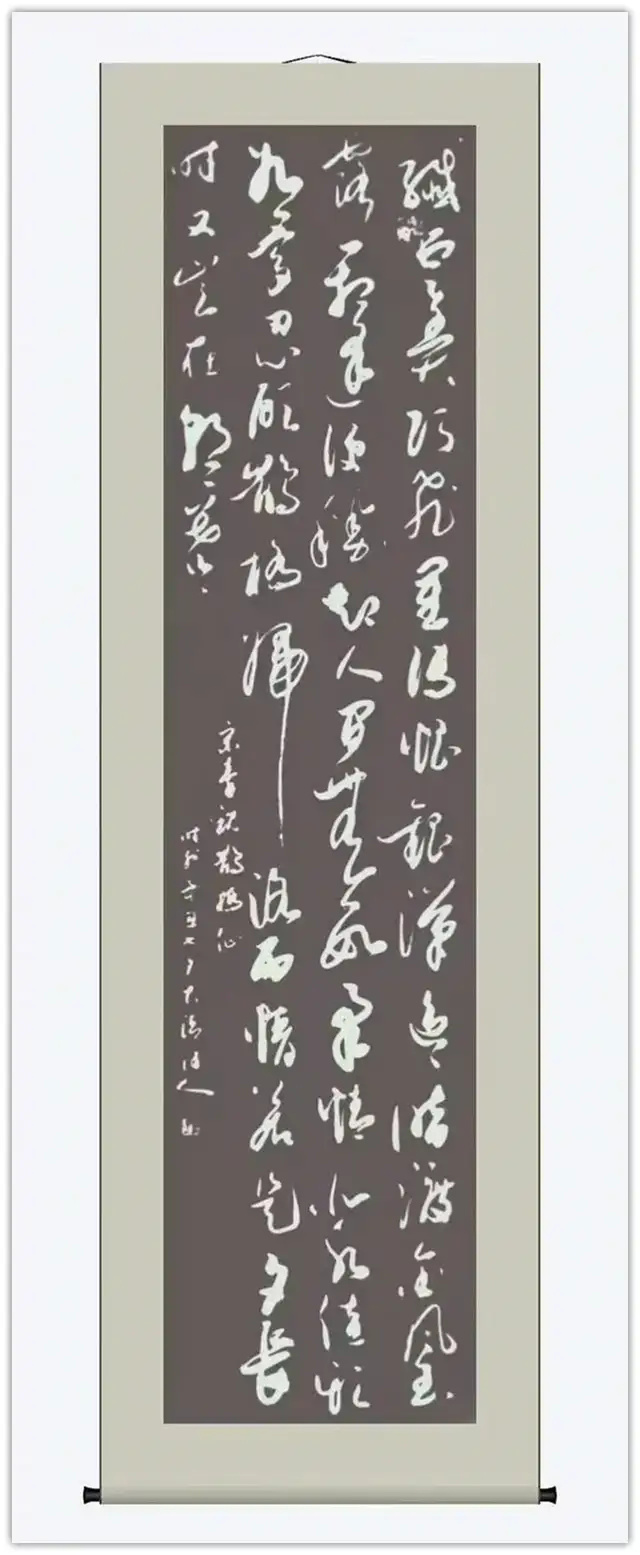 纖云弄巧飛星傳恨銀漢迢迢暗渡金風玉
露一相逢便勝卻人間無數柔情似水佳期
如夢忍顧鵲橋歸路兩情若是久長
時又豈在朝朝暮暮
宋秦觀鵲橋仙
時於辛丑七夕